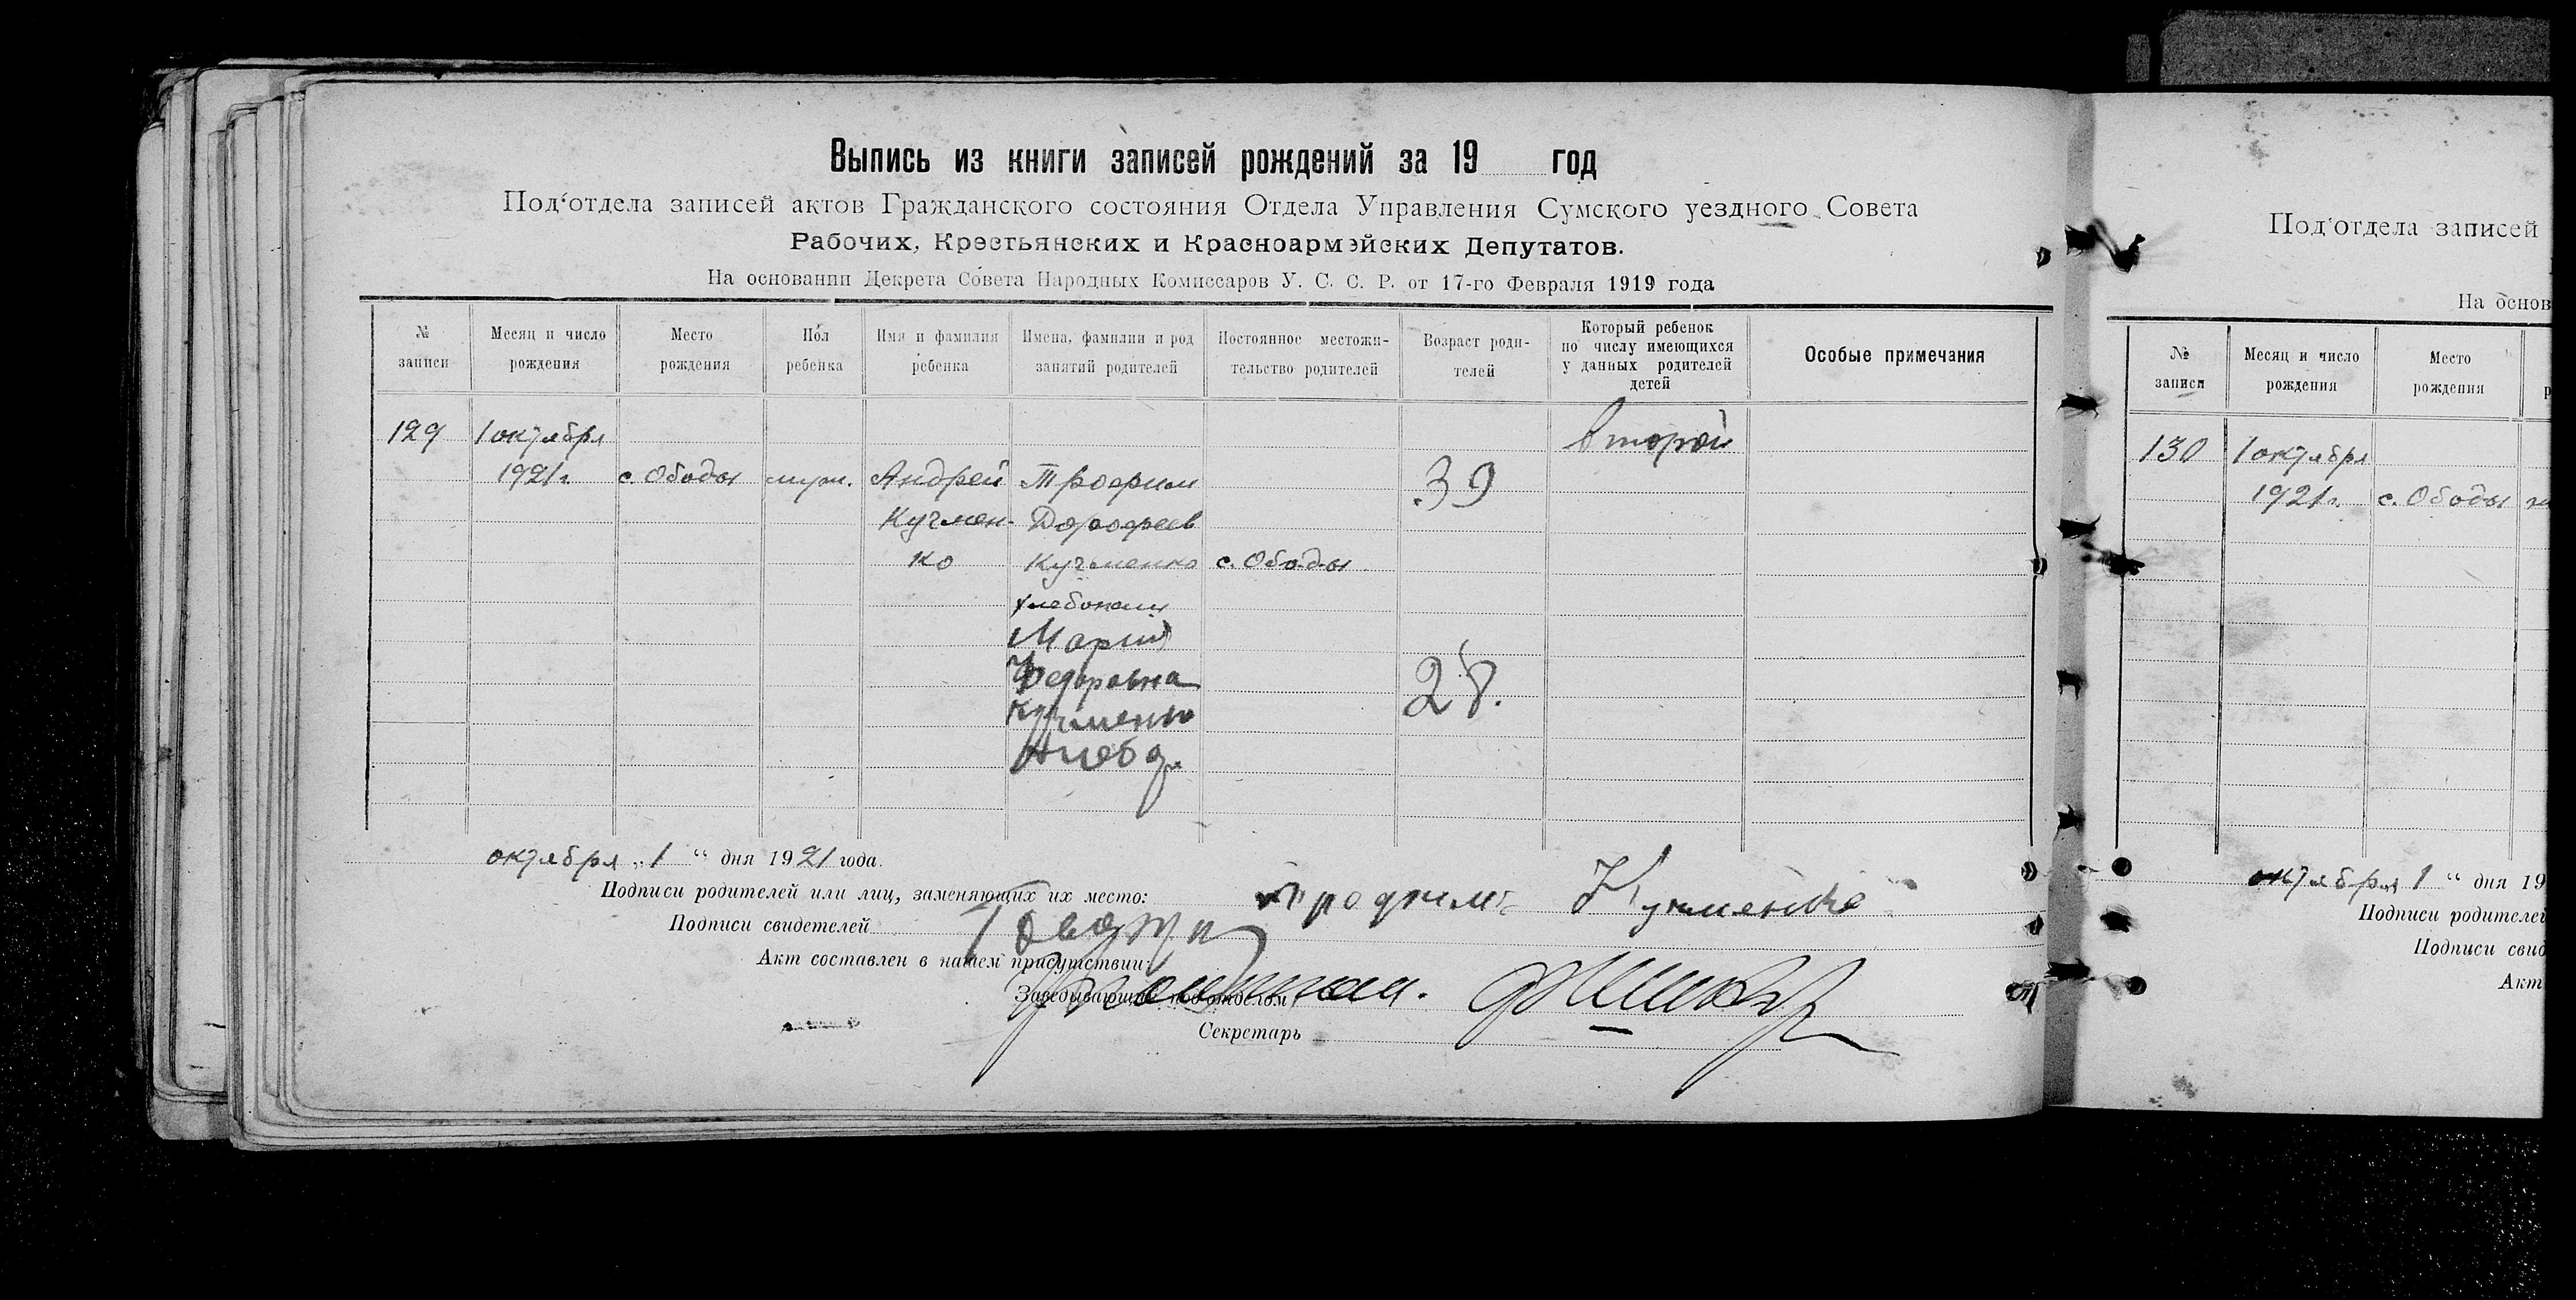 Выпись из книги записей рождений за 19 год
Под‘отдела записей актов Гражданского состояния Отдела Управления Сумского уездного Совета
Рабочих, Крестьянских и Красноармейских Депутатов.
На основании Декрета Совета Народных Комиссаров У. С. С. Р. от 17-го Февраля 1919 года
№ записи
Месяц и число рождения
Место рождения
Пол ребенка
Имя и фамилия ребенка
Имена, фамилии и род занятий родителей
Постоянное местожительство родителей
Возраст родителей
Который ребенок по числу имеющихся у данных родителей детей
Особые примечания
129 1 октября второй
1921 г. с. Ободы муж. Андрей Трофим 39
Кучмен- Дорофеев
ко Кучменко с. Ободы
хлебопаш
Мария
Федоровна 28.
Кучменко
хлебо
октября „1 “ дня 1921 года.
Подписи родителей или лиц, заменяющих их место: Трофим Кучменко
Подписи свидетелей
Акт составлен в нашем присутствии:
Заведывающий под‘отделом
Секретарь
Под‘отдела записей
На основ
№ записи
Месяц и число рождения
Место рождения
130 1 октября
1921 г. с. Ободы
октября 1 “ дня 19
Подписи родителей
Подписи свид
Акт